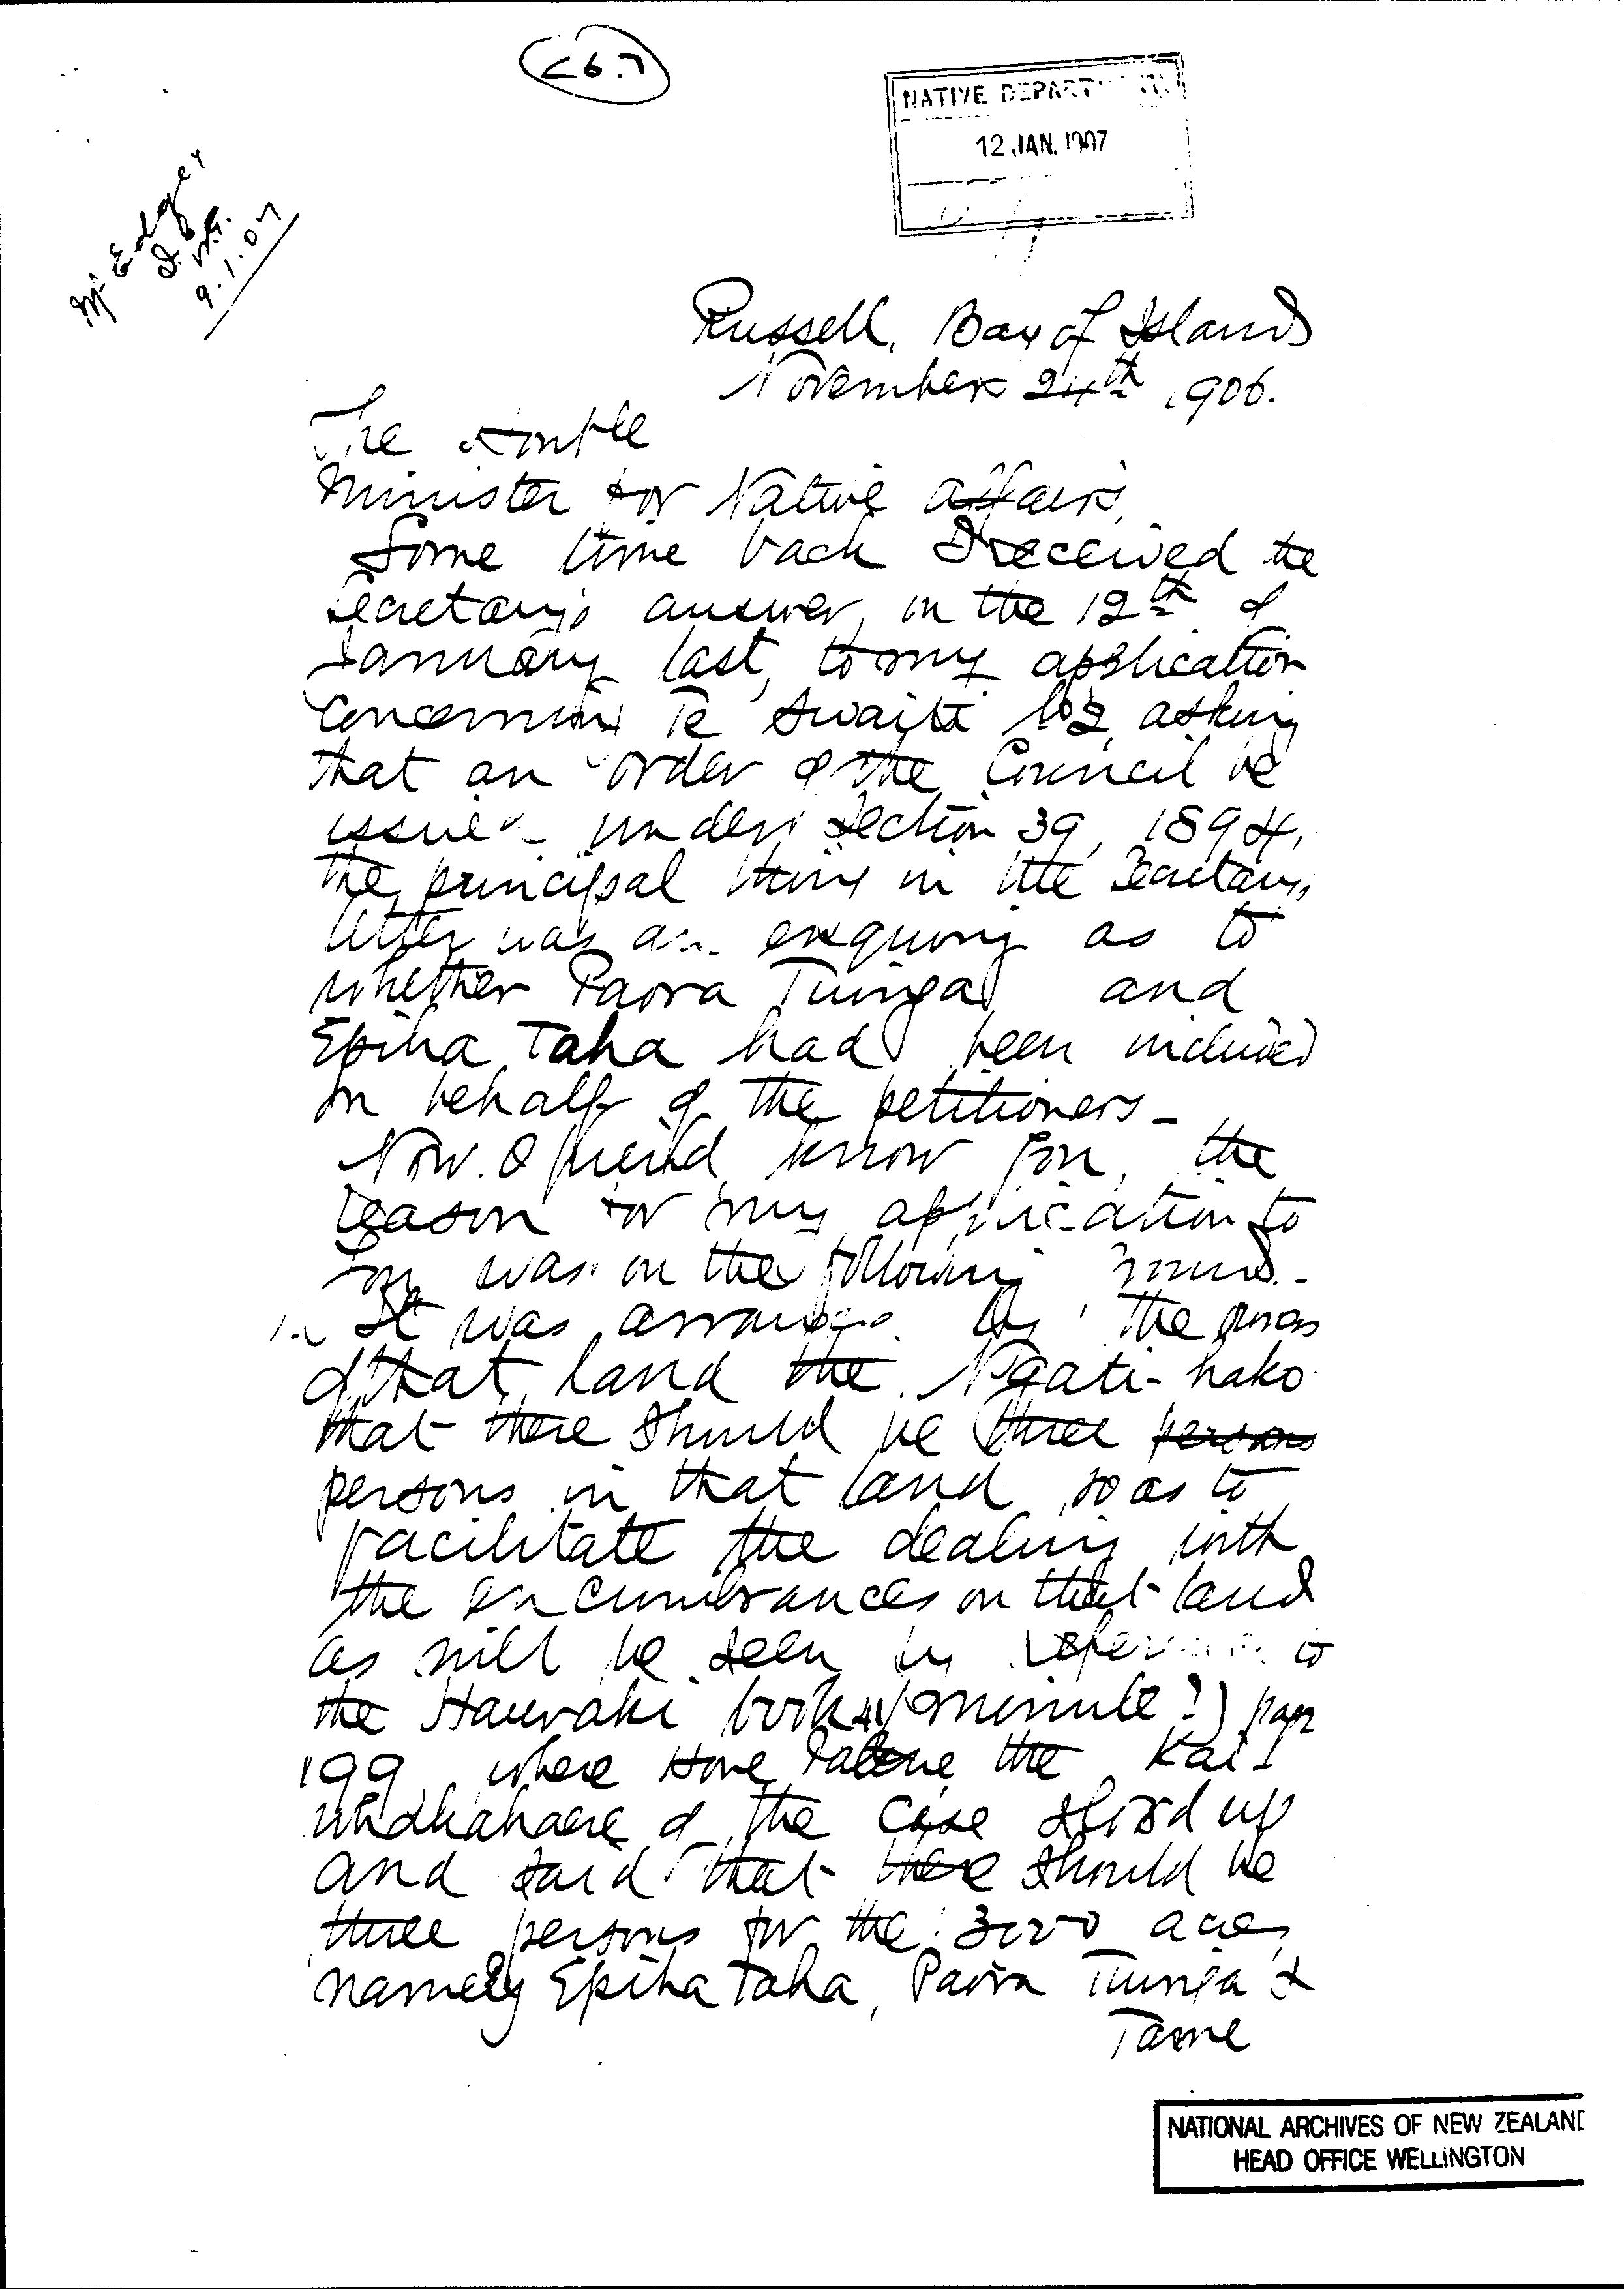 C 6.7
NATIVE DEPARTMENT
12 JAN. 1907
Mr Edger
9.1.07
Russell, Bay of Islands
November 24th 1906.
The Honble
Minister for Native Affairs,
Some time back I received the
Secretary's answer, on the 12th of
January last, to my application
concerning Te Awaiti No2, asking
that an order of the Council be
issued under Section 39, 1894,
the principal thing in the Secretary's
letter was an enquiry as to
whether Paora Tiunga and
Epiha Taha had been included
on behalf of the petitioners -
Now O friend, know you, the
reason for my application to
you was on the following
It was arranged by the
of that land the Ngati-hako
that there should be three persons
persons in that land so as to
facilitate the dealing with
the encumbrances on that land
as will be seen by reference to
the Hauraki book (minute?) page
199, where Hone the Kai-
whakahaere of the case stood up
and said that there should be
three persons for the 3000 acres
namely Epiha Taha, Paora Tiunga &
Tame
NATIONAL ARCHIVES OF NEW ZEALAND
HEAD OFFICE WELLINGTON